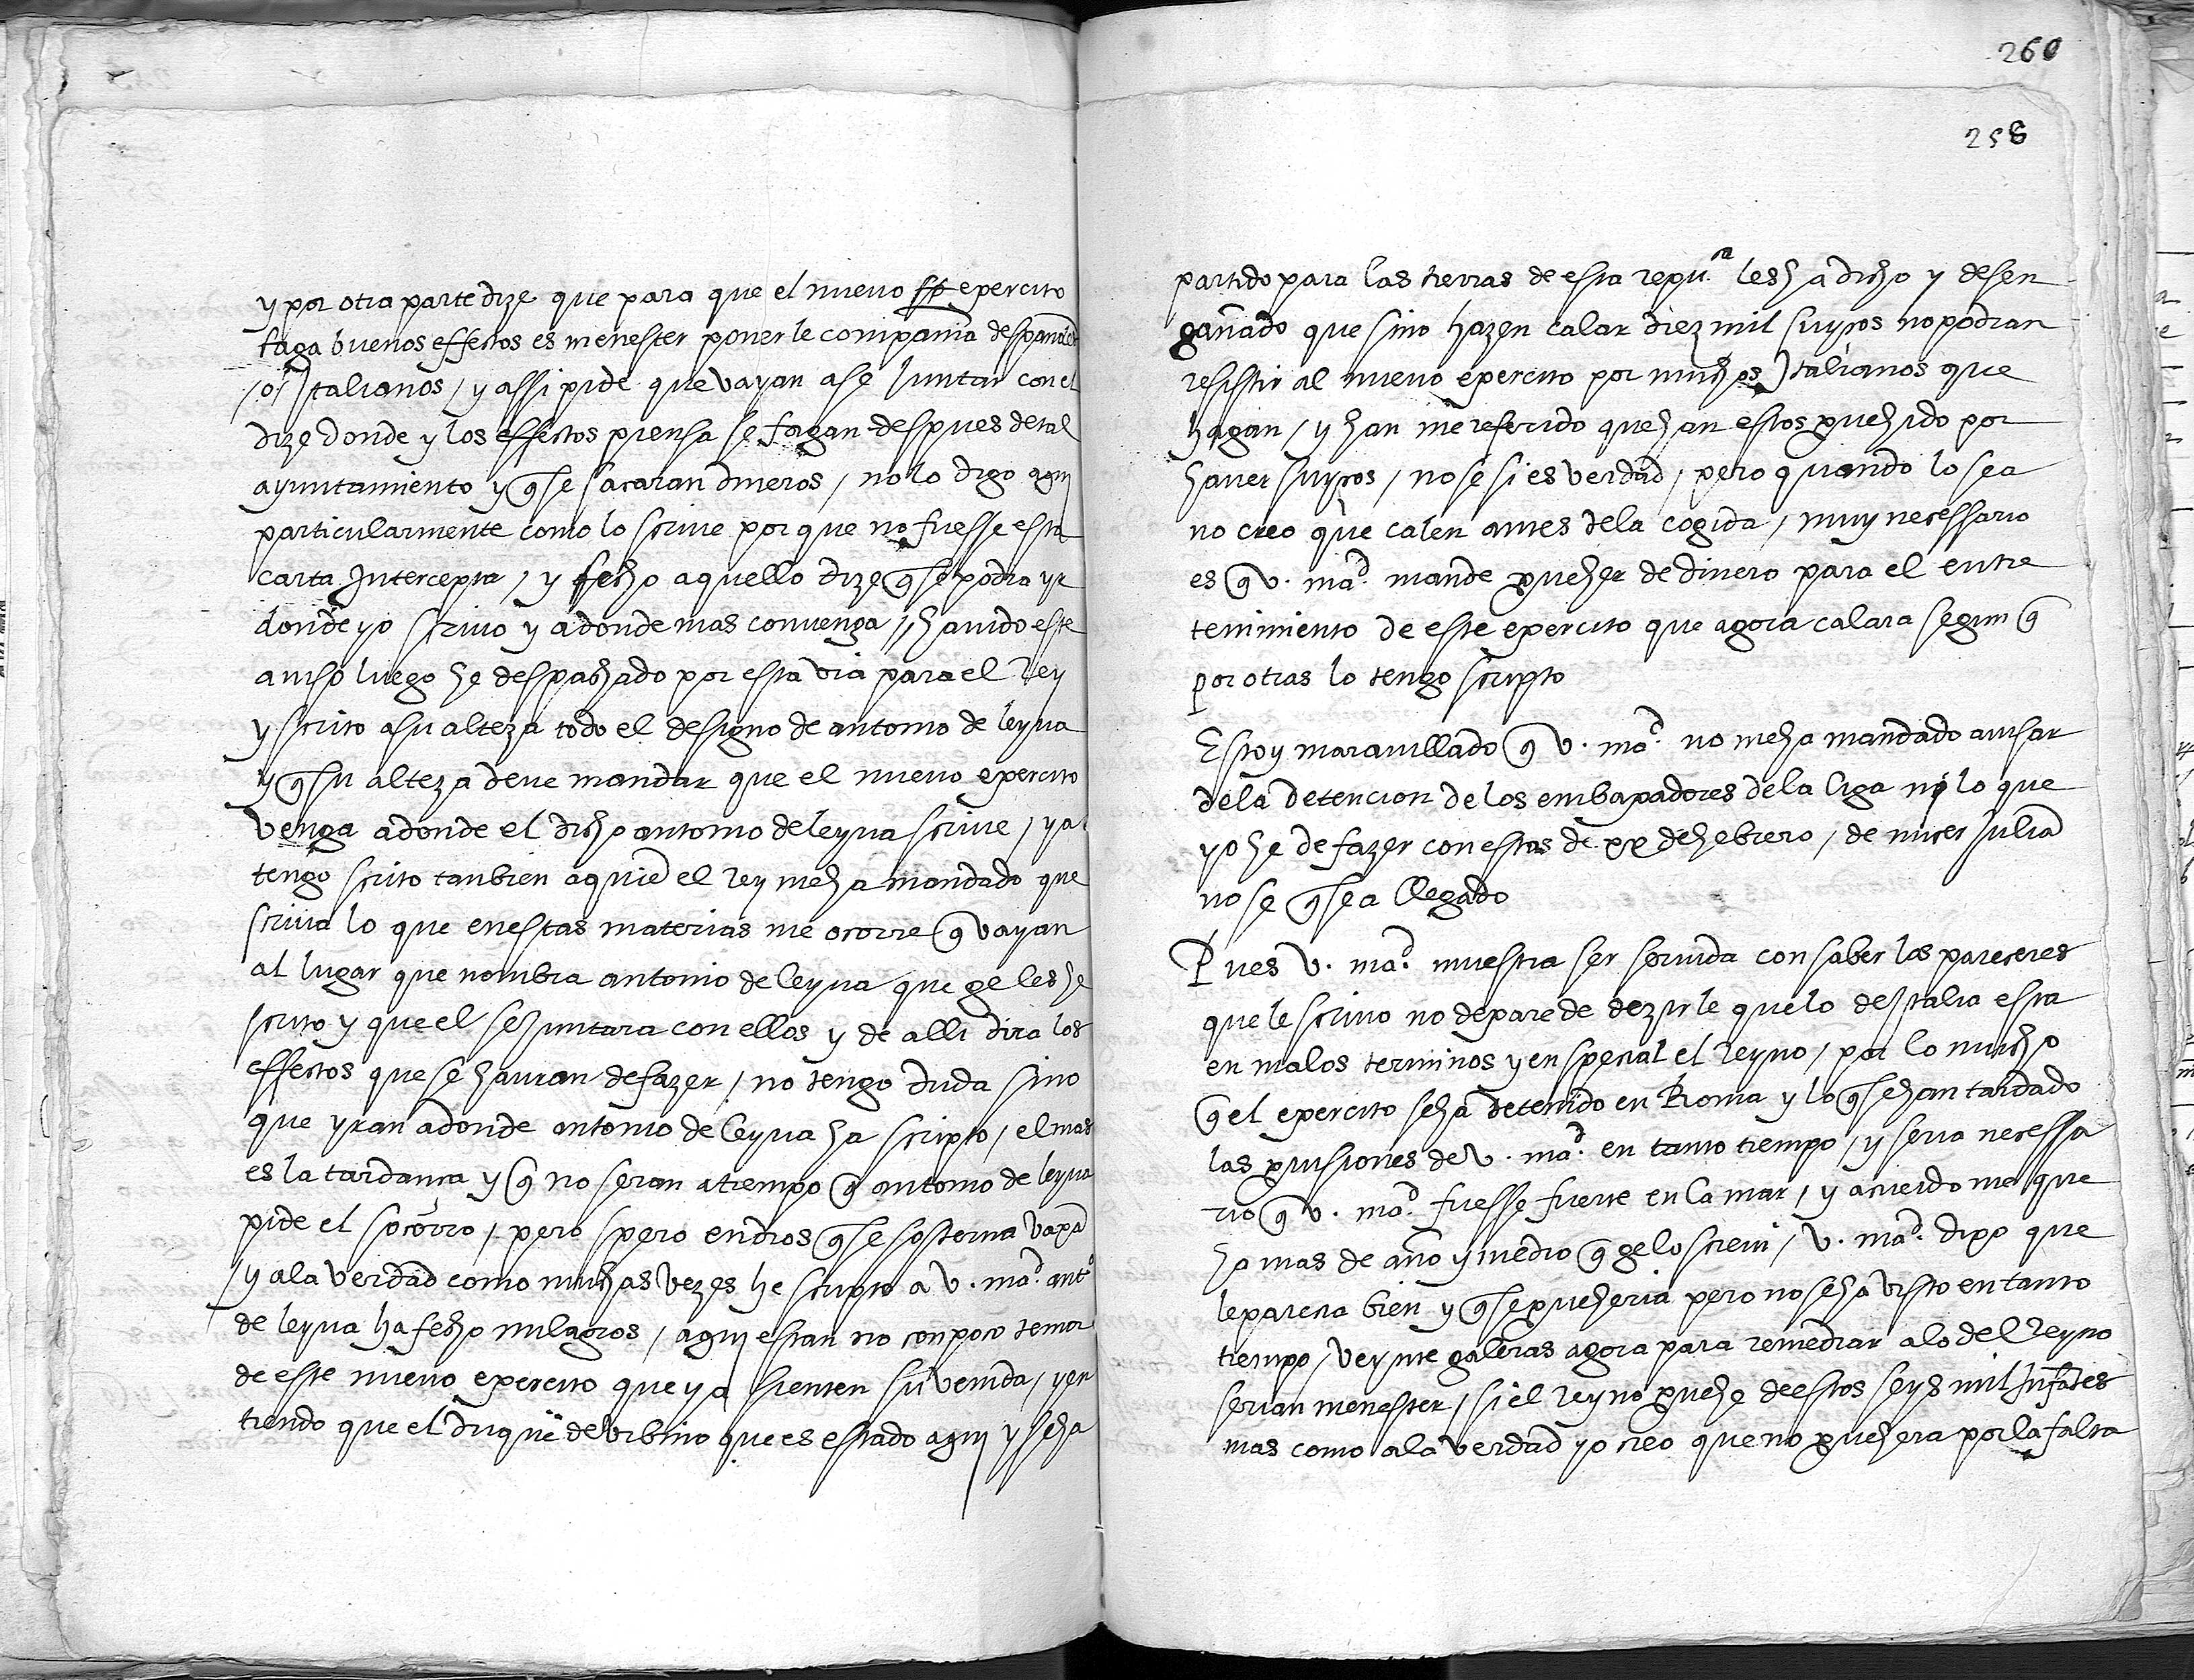 y por otra parte dize que para que el nuevo exercito
faga buenos effectos es menester ponerle compañia despañoles
/o/ Italianos / y assi pide que vayan a se Juntar con el
dize donde y los effectos piensa se fagan despues de tal
ayuntamiento y q̃ se sacaran dineros / no lo digo aquj
particularmente como lo scrive por que no fuesse esta
carta Intercepta / y fecho aquello dize q̃ se podra yr
donde yo scrivo y adonde mas convenga / havido este
aviso luego he despachado por esta via para el Rey
y scrito a su alteza todo el designo de antonio de leyva
y q̃ su alteza deve mandar que el nuevo exercito
venga adonde el dicho antonio de leyva scrive / ya
tengo scrito tanbien a quiẽ el rey me ha mandado que
scriva lo que en estas materias me ocorre q̃ vayan
al lugar que nombra antonio de leyva que ge les he
scrito y que el se Juntara con ellos y de alli dira los
effectos que se hauran de fazer / no tengo duda sino
que yran adonde antonio de leyva ha scripto / el mas
es la tardança y q̃ no seran a tiempo q̃ antonio de leyva
pide el socorro / pero spero en dios q̃ se sosterna
y a la verdad como muchas vezes he scripto a v. mad. antº
de leyva ha fecho milagros / aquj estan no con poco temor
de este nuevo exercito que ya sienten su venida / y en
tiendo que el duque de urbino que es estado aquj y se ha
260
258
partido para las tierras de esta repuca. les ha dicho y desen
gañado que sino hazen calar diez mil suyços no podran
resistir al nuevo exercito por muchos Italianos que
hagan / y han me referido que han estos provehido por
haver suyços / no se si es verdad / pero quando lo sea
no creo que calen antes de la cogida / muy necessario
es q̃ v. mad. mande proveher de dinero para el entre
tenimiento de este exercito que agora calara segun q̃
por otras lo tengo scripto
Estoy maravillado q̃ v. mad. no me ha mandado avisar
de la detencion de los embaxadores de la liga ni lo que
yo he de fazer con estos de xx de hebrero / de micer Juliã
no se q̃ sea llegado
Pues v. mad. muestra ser servida con saber los pareceres
que le scrivo no dexare de dezirle que lo de Italia esta
en malos terminos y en special el Reyno / por lo mucho
q̃ el exercito se ha detenido en Roma y lo q̃ se han tardado
las provisiones de v. mad. en tanto tiempo / y seria necessa
rio q̃ v. mad. fuesse fuerte en la mar / y acuerdo me que
ha mas de año y medio q̃ ge lo screvi / v. mad. dixo que
le parecia bien y q̃ se proveheria pero no se ha visto en tanto
tiempo / veynte galeras agora para remediar a lo del Reyno
serian menester / si el rey no provehe de estos seys mil Infantes
mas como a la verdad yo creo que no provehera por la falta